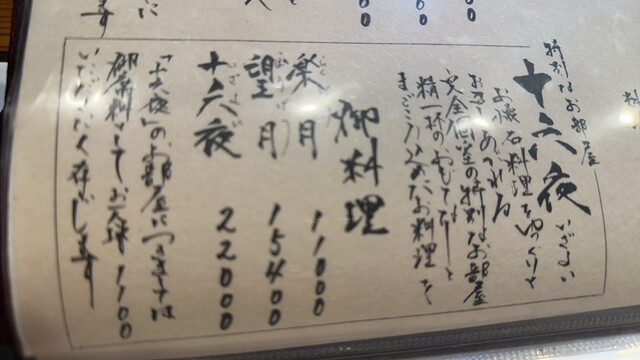 特別なお部屋
十六夜
いざよい
お懐石料理をゆっくりと
お召し
完全個室の特別なお部屋
精一杯のおもてなしと
まごころ込めたお料理を
御料理
楽月 11000
望月 15400
十六夜 22000
いざよい
「十六夜」のお部屋につきましては
御席料としてお一人様1100
いただく存じします